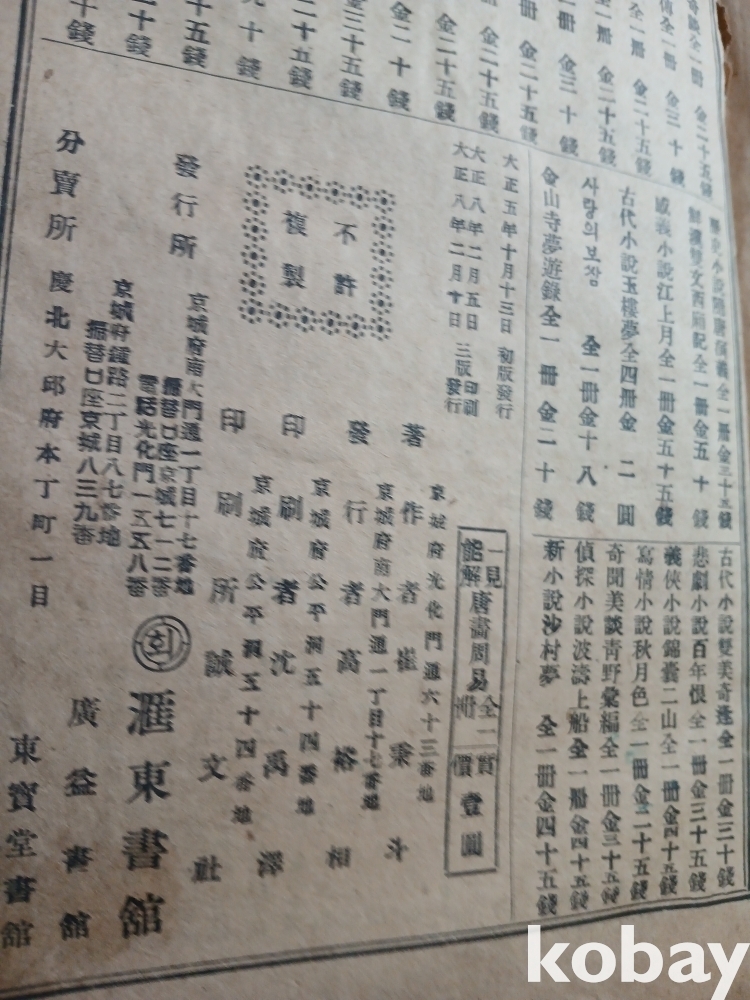 金二十五錢
金三十錢
金二十五錢
金二十五錢
金三十錢
金二十五錢
金二十五錢
金二十五錢
金二十錢
金三十五錢
二十五錢
九十錢
十五錢
二十錢
十錢
歷史小說隋唐演義全一冊金三十五錢
鮮漢雙文西廂記全一冊金五十錢
威義小說江上月全一冊金五十五錢
古代小說玉樓夢全四冊金二圓
사랑의보장 全一冊金十八錢
金山寺夢遊錄全一冊金二十錢
古代小說雙美奇逢全一冊金三十錢
悲劇小說百年恨全一冊金三十五錢
義俠小說錦囊二山全一冊金四十五錢
寫情小說秋月色全一冊金二十五錢
奇聞美談靑野彙編全一冊金三十五錢
偵探小說波濤上船全一冊金四十五錢
新小說沙村夢 全一冊金四十五錢
大正五年十月十三日 初版發行
大正八年二月五日 三版印刷
大正八年二月十日 發行
一見能解唐畵周易全一冊 實價壹圓
不許複製
京城府光化門通六十三番地
著作者 崔秉斗
京城府南大門通一丁目十七番地
發行者 高裕相
京城府公平洞五十四番地
印刷者 沈禹澤
京城府公平洞五十四番地
印刷所 誠文社
發行所
京城府南大門通一丁目十七番地
振替口座京城七一二番
電話光化門一五五八番
회 滙東書舘
分賣所
京城府鍾路二丁目八七番地
振替口座京城八三九番
廣益書舘
慶北大邱府本丁町一目
東寶堂書舘
kobay